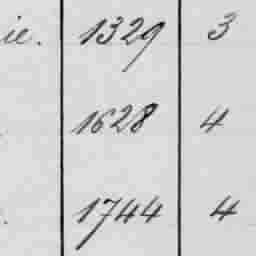 ie. 1329 3
1628 4
. 1744 4